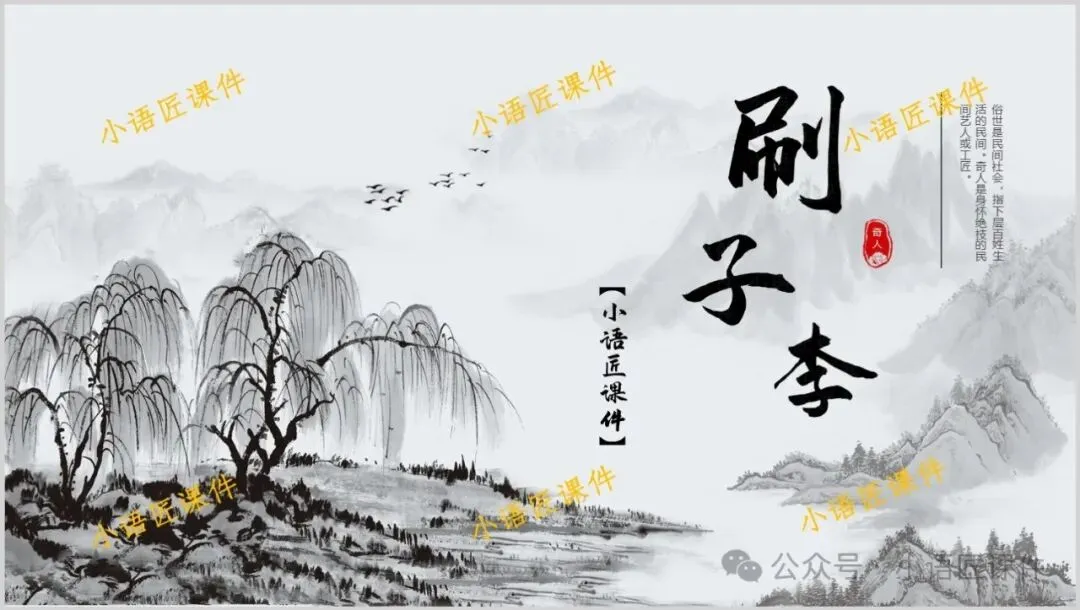 小语匠课件
小语匠课件
小语匠课件
刷子李
奇人
俗世是民间社会，指下层百姓生
活的民间。奇人是身怀绝技的民
间艺人或工匠。
【小语匠课件】
小语匠课件
小语匠课件
小语匠课件
公众号·小语匠课件